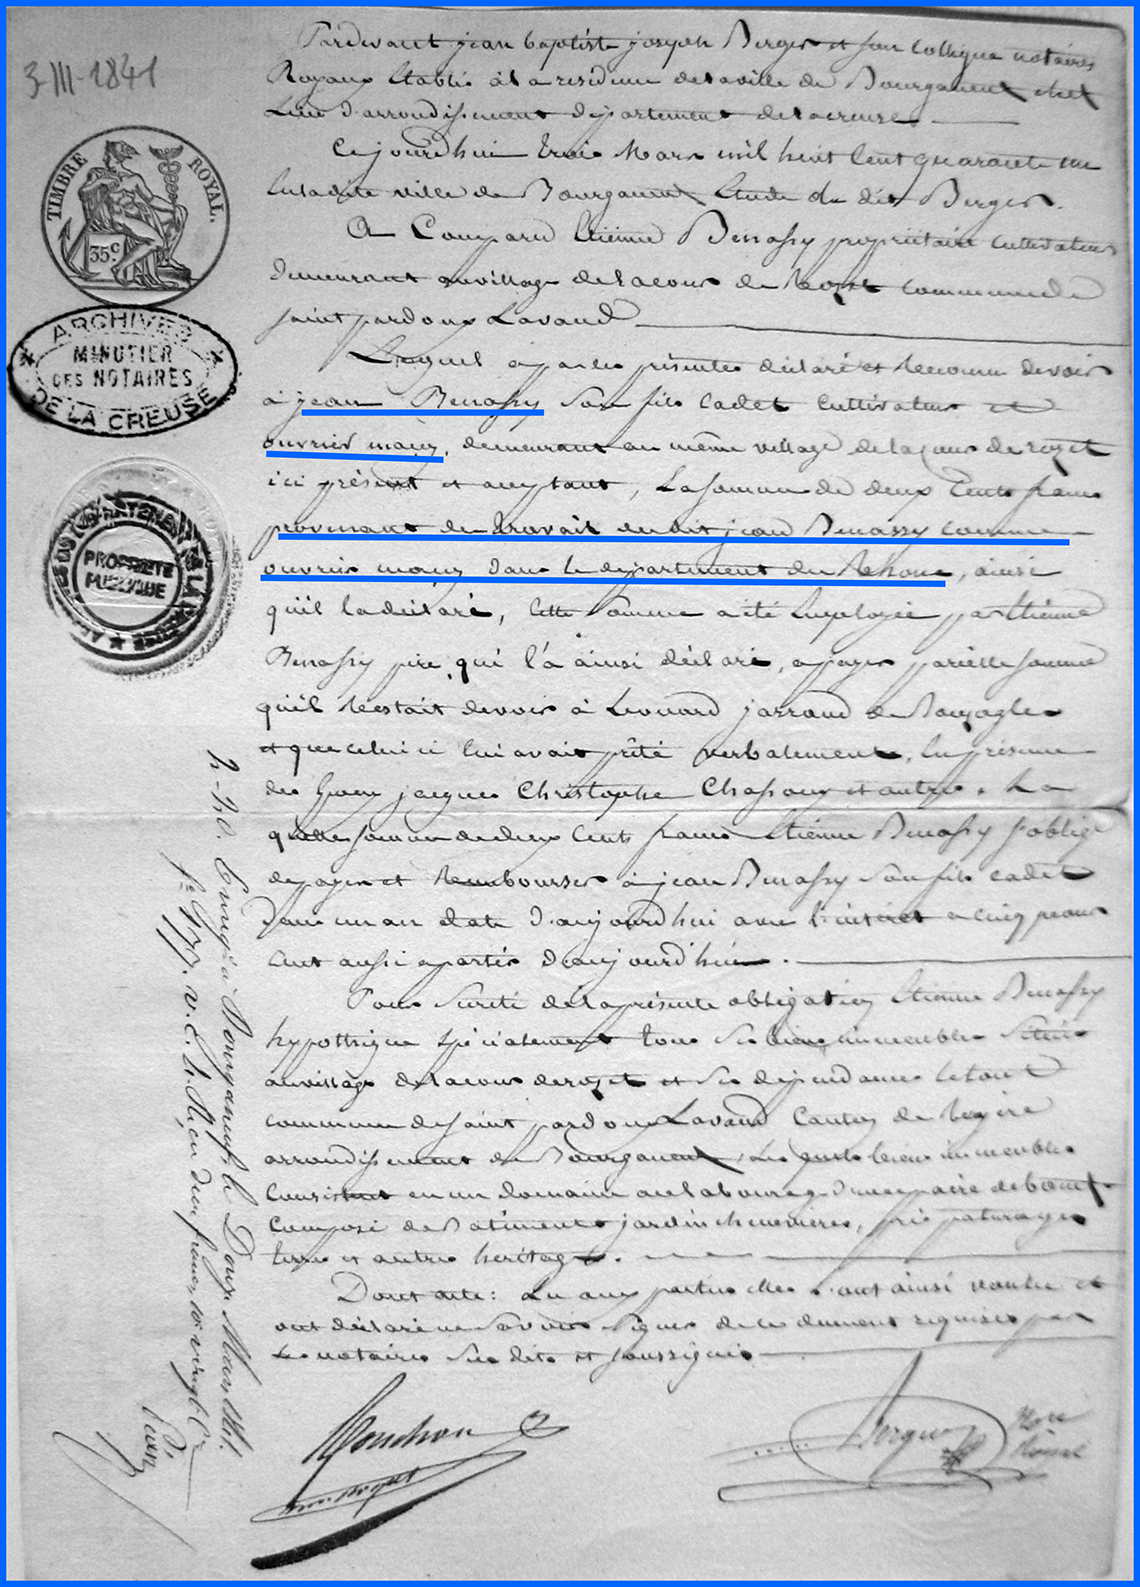 3-III-1841
TIMBRE ROYAL.
35c.
ARCHIVES
MINUTIER
DES NOTAIRES
DE LA CREUSE
PROPRIÉTÉ
PUBLIQUE
Pardevant jean baptiste joseph Berger et son collègue notaires
Royaux établis à la residence de la ville de Bourganeuf chef
Lieu d'arrondissement département de la creuse
Ce jourd'hui trois Mars mil huit cent quarante un
en ladite ville de Bourganeuf Etude de dit Berger.
A Comparu Etiénne Benassy propriétaire cultivateur
demeurant au village de la cour de Rozet commune de
saint pardoux Lavaud
Lequel a par les présentes déclaré et reconnu devoir
à jean Benassy son fils cadet cultivateur et
ouvrier maçon, demeurant au même village de la cour de rozet
ici présent et acceptant, La somme de deux Cents francs
provenant de travail du dit jean Benassy comme
ouvrier maçon dans le département du Rhone, ainsi
qu'il la déclaré, cette somme a été employée par Etiénne
Benassy père, qui l'a ainsi déclaré, a payer pareille somme
qu'il restait devoir à Léonard jarraud de
et que celui ci lui avait prêté verbalement, en présence
des jacques Christophe Chassoux et autres. La
quelle somme de deux Cents francs Etiénne Benassy s'oblige
de payer et Rembourser à jean Benassy son fils cadet
dans un an date d'aujourd'hui avec l'intéret a cinq pour
cent aussi a partir d'aujourd'hui.
Pour sureté de la présente obligation Etiénne Benassy
hypothèque spécialement tous ses biens immeubles situés
au village de la cour de rozet et ses dépendances le tout
commune de saint pardoux Lavaud Canton de
arrondissement de Bourganeuf, Les quels biens immeubles
Consistent en un domaine au labourage d'une paire de bœufs
composé de Batiments jardin chenevières, pré paturages
terre et autres héritages.
Dont acte: Lu aux parties elles l'ont ainsi voulu et
ont déclaré ne savoir signer de ce dument requises par
les notaires susdits et soussignés
Berger
Nore
Royal
Enrégé à Bourganeuf, le Douze Mars 1841.